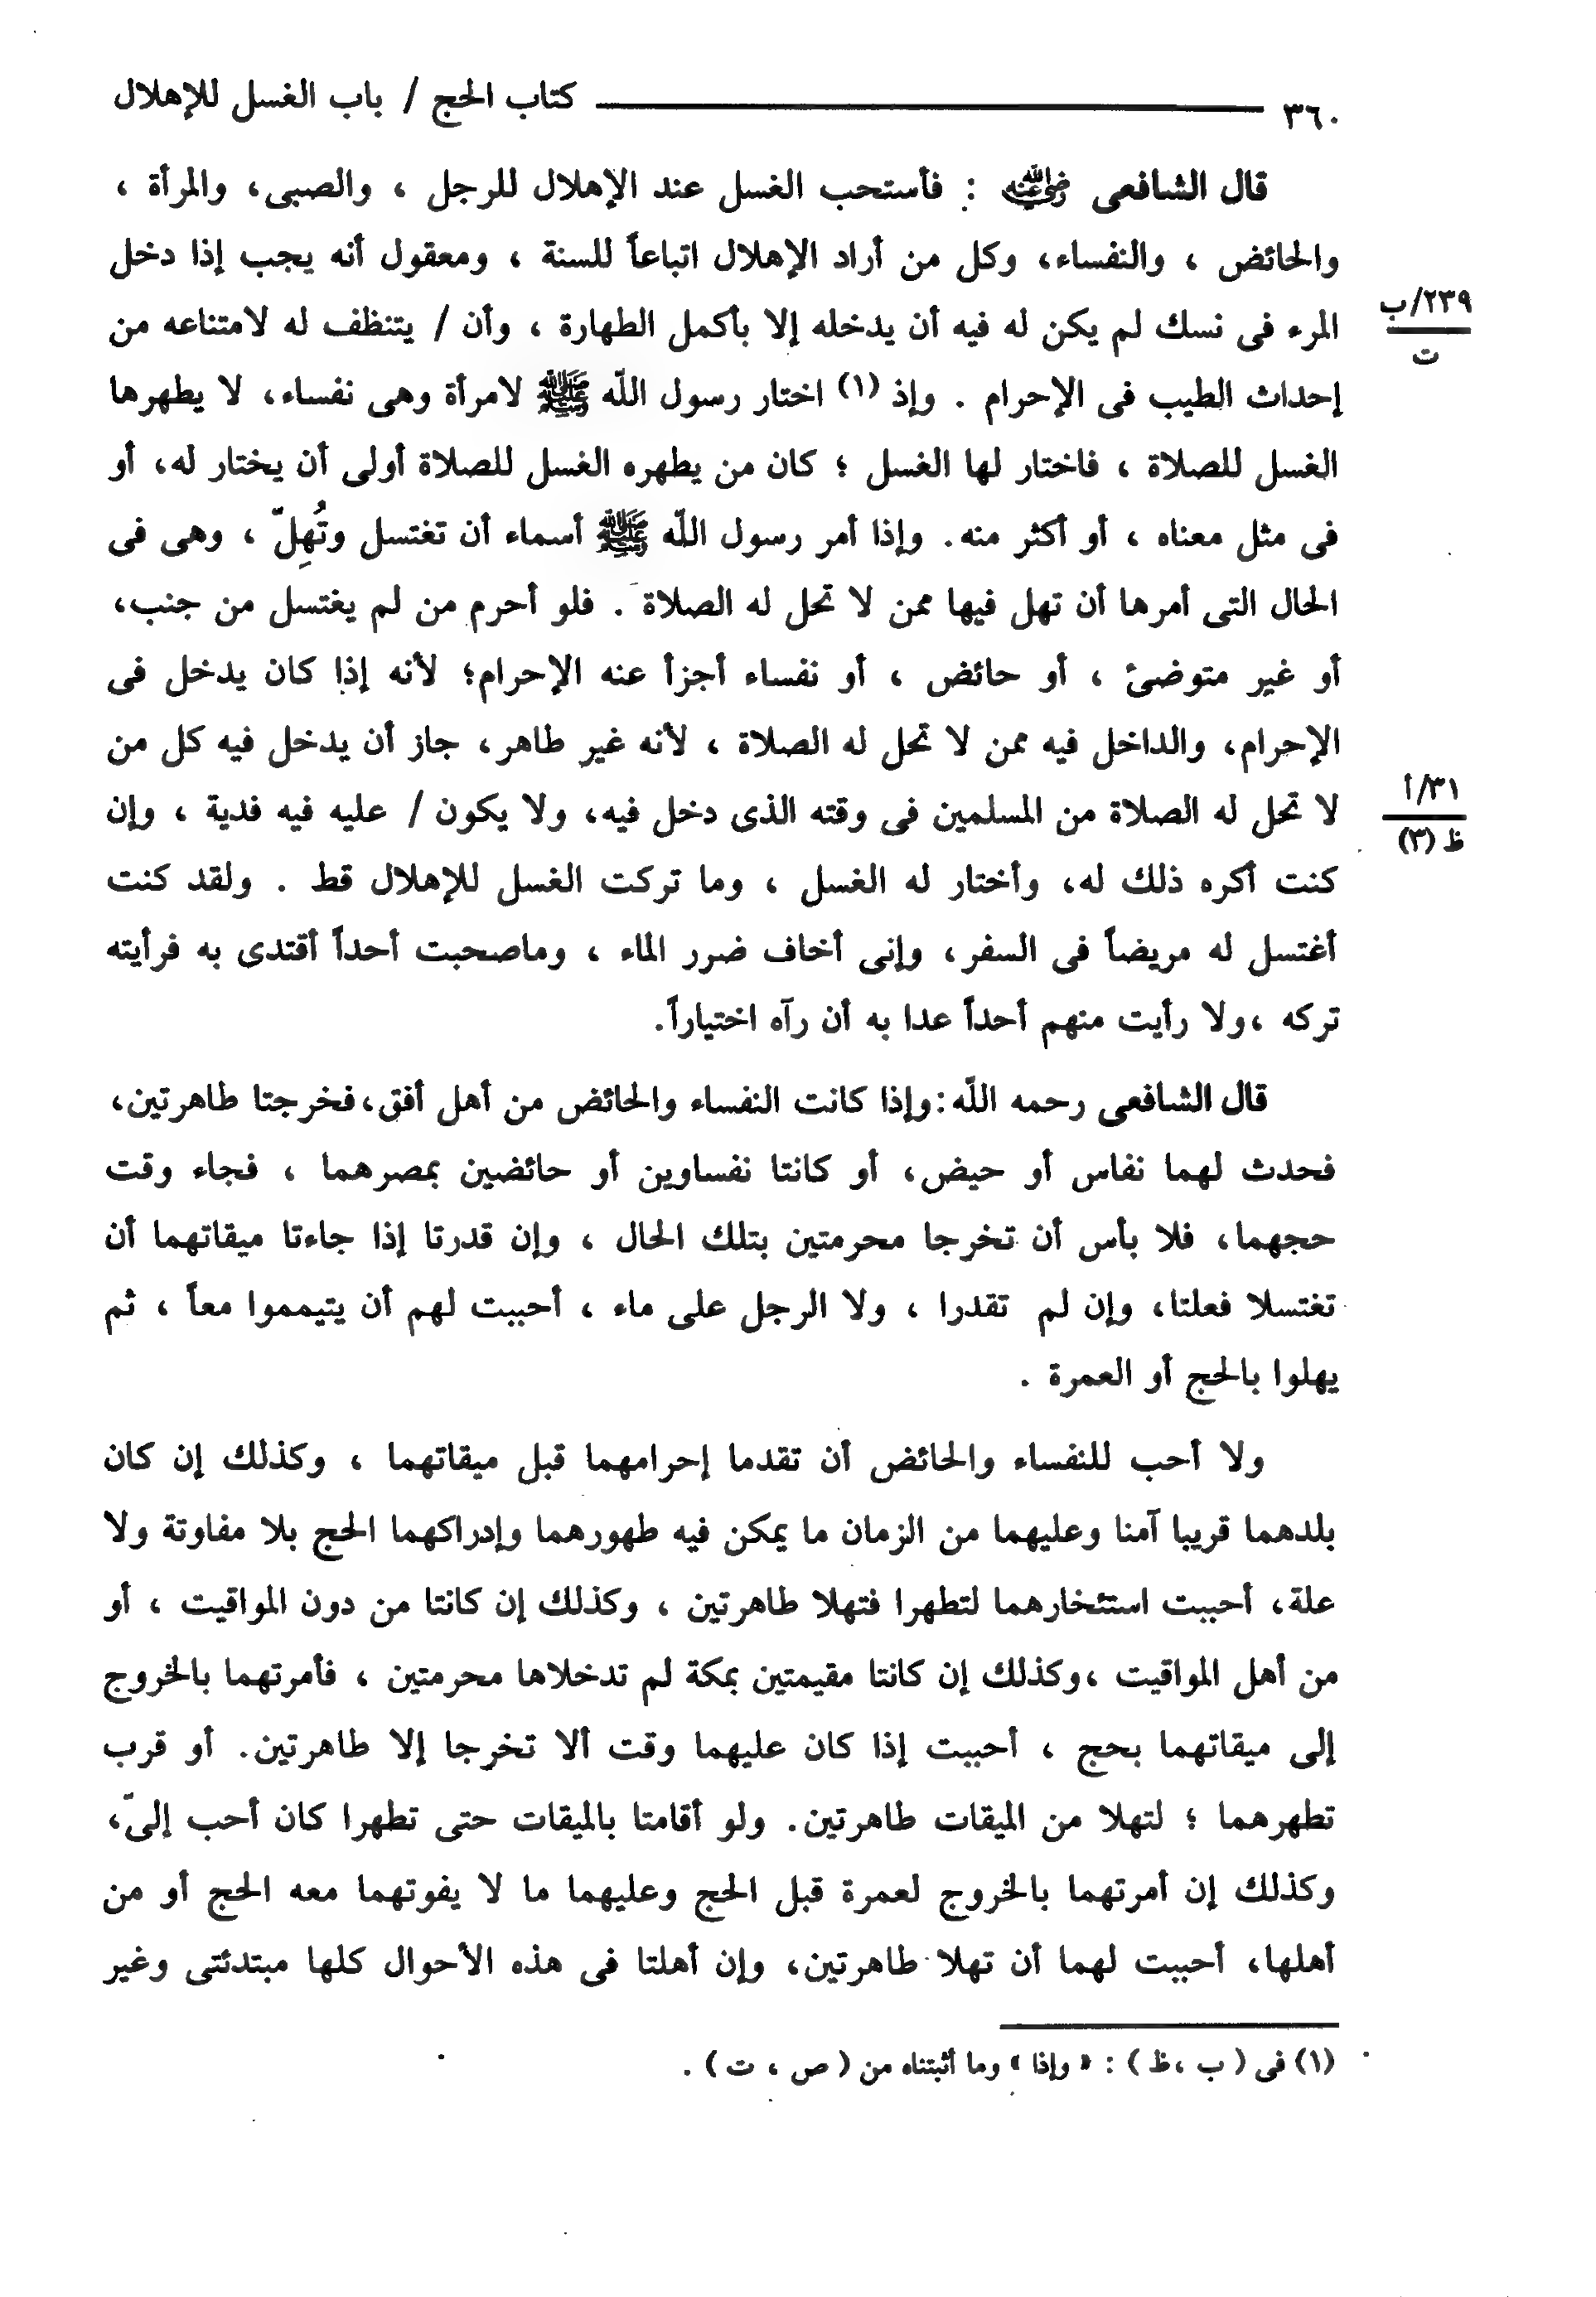 ٣٦٠ كتاب الحج / باب الغسل للإهلال
قال الشافعى رضي الله عنه : فأستحب الغسل عند الإهلال للرجل ، والصبى، والمرأة ،
والحائض ، والنفساء، وكل من أراد الإهلال اتباعاً للسنة ، ومعقول أنه يجب إذا دخل
٢٣٩/ب
المرء فى نسك لم يكن له فيه أن يدخله إلا بأكمل الطهارة ، وأن / يتنظف له لامتناعه من
ت
إحداث الطيب فى الإحرام . وإذ (١) اختار رسول اللّه ﷺ لامرأة وهى نفساء، لا يطهرها
الغسل للصلاة ، فاختار لها الغسل ؛ كان من يطهره الغسل للصلاة أولى أن يختار له، أو
فى مثل معناه ، أو أكثر منه. وإذا أمر رسول اللّه ﷺ أسماء أن تغتسل وتُهِلّ ، وهى فى
الحال التى أمرها أن تهل فيها ممن لا تحل له الصلاة . فلو أحرم من لم يغتسل من جنب،
أو غير متوضئ ، أو حائض ، أو نفساء أجزأ عنه الإحرام؛ لأنه إذا كان يدخل فى
الإحرام، والداخل فيه ممن لا تحل له الصلاة ، لأنه غير طاهر، جاز أن يدخل فيه كل من
٣١/أ
لا تحل له الصلاة من المسلمين فى وقته الذى دخل فيه، ولا يكون / عليه فيه فدية ، وإن
ظ (٣)
كنت أكره ذلك له، وأختار له الغسل ، وما تركت الغسل للإهلال قط . ولقد كنت
أغتسل له مريضاً فى السفر، وإنى أخاف ضرر الماء ، وماصحبت أحداً أقتدى به فرأيته
تركه ،ولا رأيت منهم أحداً عدا به أن رآه اختياراً.
قال الشافعى رحمه اللّه:وإذا كانت النفساء والحائض من أهل أفق،فخرجتا طاهرتين،
فحدث لهما نفاس أو حيض، أو كانتا نفساوين أو حائضين بمصرهما ، فجاء وقت
حجهما، فلا بأس أن تخرجا محرمتين بتلك الحال ، وإن قدرتا إذا جاءتا ميقاتهما أن
تغتسلا فعلتا، وإن لم تقدرا ، ولا الرجل على ماء ، أحببت لهم أن يتيمموا معاً ، ثم
يهلوا بالحج أو العمرة .
ولا أحب للنفساء والحائض أن تقدما إحرامهما قبل ميقاتهما ، وكذلك إن كان
بلدهما قريبا آمنا وعليهما من الزمان ما يمكن فيه طهورهما وإدراكهما الحج بلا مفاوتة ولا
علة، أحببت استئخارهما لتطهرا فتهلا طاهرتين ، وكذلك إن كانتا من دون المواقيت ، أو
من أهل المواقيت ،وكذلك إن كانتا مقيمتين بمكة لم تدخلاها محرمتين ، فأمرتهما بالخروج
إلى ميقاتهما بحج ، أحببت إذا كان عليهما وقت ألا تخرجا إلا طاهرتين. أو قرب
تطهرهما ؛ لتهلا من الميقات طاهرتين. ولو أقامتا بالميقات حتى تطهرا كان أحب إلىّ،
وكذلك إن أمرتهما بالخروج لعمرة قبل الحج وعليهما ما لا يفوتهما معه الحج أو من
أهلها، أحببت لهما أن تهلا طاهرتين، وإن أهلتا فى هذه الأحوال كلها مبتدئتى وغير
(١) فى ( ب ،ظ ) : « وإذا » وما أثبتناه من ( ص ، ت ) .